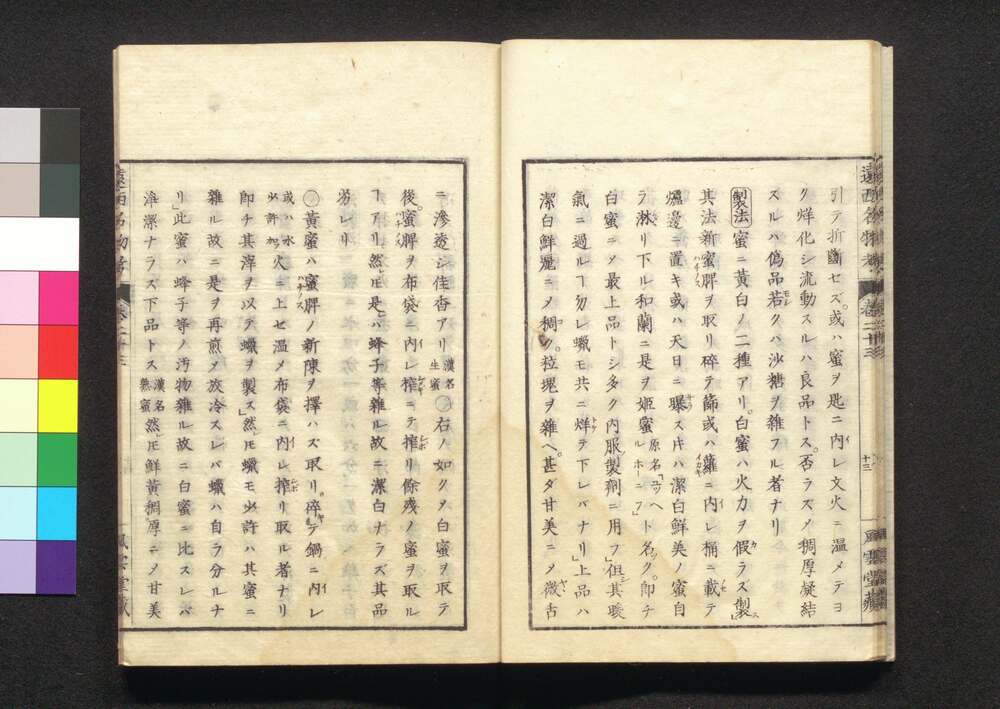 引テ折斷セズ。或ハ蜜ヲ匙ニ内レ文火ニ温メテヨ
ク烊化シ流動スルハ良品トス。否ラズメ稠厚凝結
スルハ偽品若クハ沙糖ヲ雜フル者ナリ
製法 蜜ニ黃白ノ二種アリ。白蜜ハ火力ヲ假ラズ製
其法新蜜脾ヲ取リ碎テ篩或ハ籮ニ内レ桶ニ載テ
爐邊ニ置キ或ハ天日ニ曝ス片ハ潔白鮮美ノ蜜自
ラ淋リ下ル和蘭ニ是ヲ姬蜜 原名「ヨッヘルホーニフ」ト名ク。即チ
白蜜ニメ最上品トシ多ク内服製劑ニ用フ」但其暖
氣ニ過ルヿ勿レ蠟モ共ニ烊テ下レバナリ」上品ハ
潔白鮮麗ニメ稠ク。粒塊ヲ雜ヘ。甚ダ甘美ニメ微舌
ニ滲透シ佳香アリ 漢名生蜜 ○右ノ如クメ白蜜ヲ取テ
後。蜜脾ヲ布袋ニ内レ搾ニテ搾リ餘殘ノ蜜ヲ取ル
ヿアリ。然𪜈是ハ蜂子等雜ル故ニ潔白ナラズ其品
劣レリ
○黃蜜ハ蜜脾ノ新陳ヲ擇ハズ取リ。碎テ鍋ニ内レ
或ハ水少許加ヘ 火ニ上セ温メ布袋ニ内レ搾リ取ル者ナリ
即チ其滓ヲ以テ蠟ヲ製ス」然𪜈蠟モ少許ハ其蜜ニ
雜ル故ニ是ヲ再煎メ放冷スレバ蠟ハ自ラ分ルナ
リ」此蜜ハ蜂子等ノ汚物雜ル故ニ白蜜ニ比スレバ
淨潔ナラズ下品トス 漢名熟蜜 然𪜈鮮黃稠厚ニメ甘美
遠西名物考 卷二十三
風雲堂藏